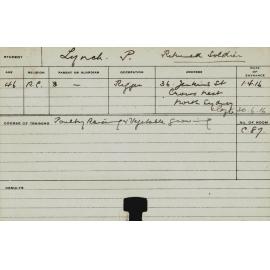 STUDENT Lynch. P. Returned Soldier
AGE RELIGION PARENT OR GUARDIAN OCCUPATION ADDRESS DATE OF ENTRANCE
46 R.C. - Rigger 36 Jenkins St 1.4.16
Crows Nest
North Sydney
30.6.16
COURSE OF TRAINING Poultry Raising & Vegetable Growing No. OF ROOM
C.87
RESULTS